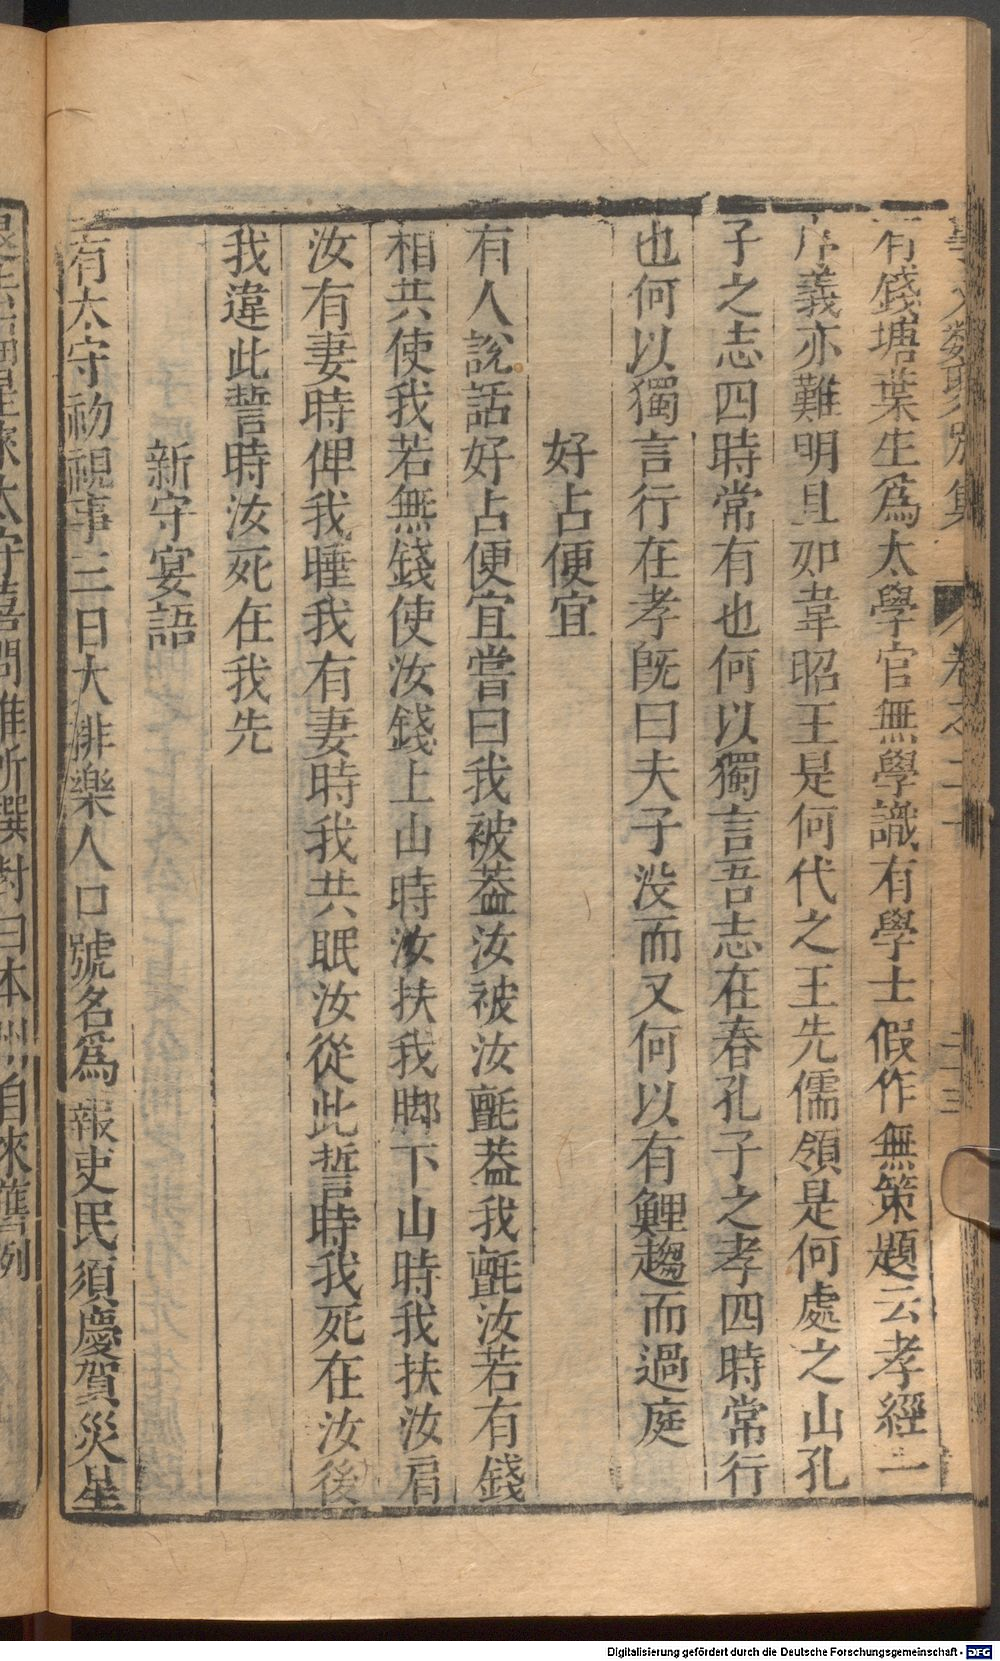 事文類聚别集 卷之二十 二十三
有錢塘葉生爲太學官無學識有學士假作無策題云孝經一
序義亦難明且如韋昭王是何代之王先儒領是何處之山孔
子之志四時常有也何以獨言吾志在春孔子之孝四時常行
也何以獨言行在孝既曰夫子没而又何以有鯉趨而過庭
好占便宜
有人說話好占便宜嘗曰我被蓋汝被汝氈蓋我氈汝若有錢
相共使我若無錢使汝錢上山時汝扶我脚下山時我扶汝肩
汝有妻時俾我睡我有妻時我共眠汝從此誓時我死在汝後
我違此誓時汝死在我先
新守宴語
有太守初視事三日大排樂人口號名爲報吏民須慶賀災星
太守喜問誰所撰對曰本州自來舊例
Digitalisierung gefördert durch die Deutsche Forschungsgemeinschaft - DFG